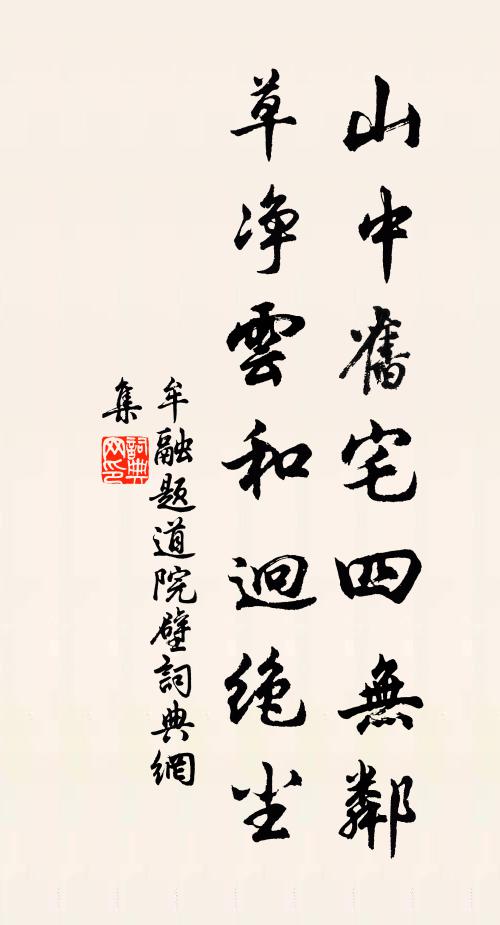 山中舊宅四無鄰
草净雲和迥绝尘
牟融题道院壁詞典網
集
詞典网印